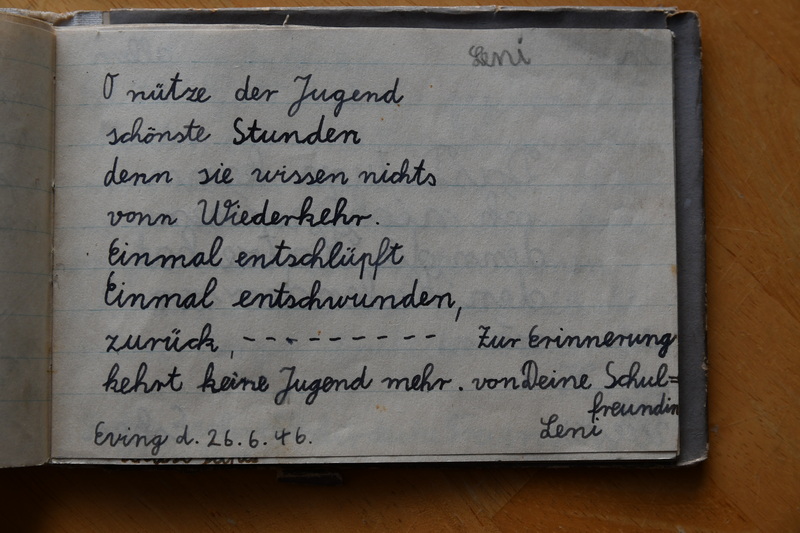 Leni
O nütze der Jugend
schönste Stunden
denn sie wissen nichts
vonn Wiederkehr.
Einmal entschlüpft
Einmal entschwunden,
zurück, - - - - - - - - -
Zur Erinnerung
kehrt keine Jugend mehr. von Deine Schul=
freundin
Eving d. 26.6.46.
Leni